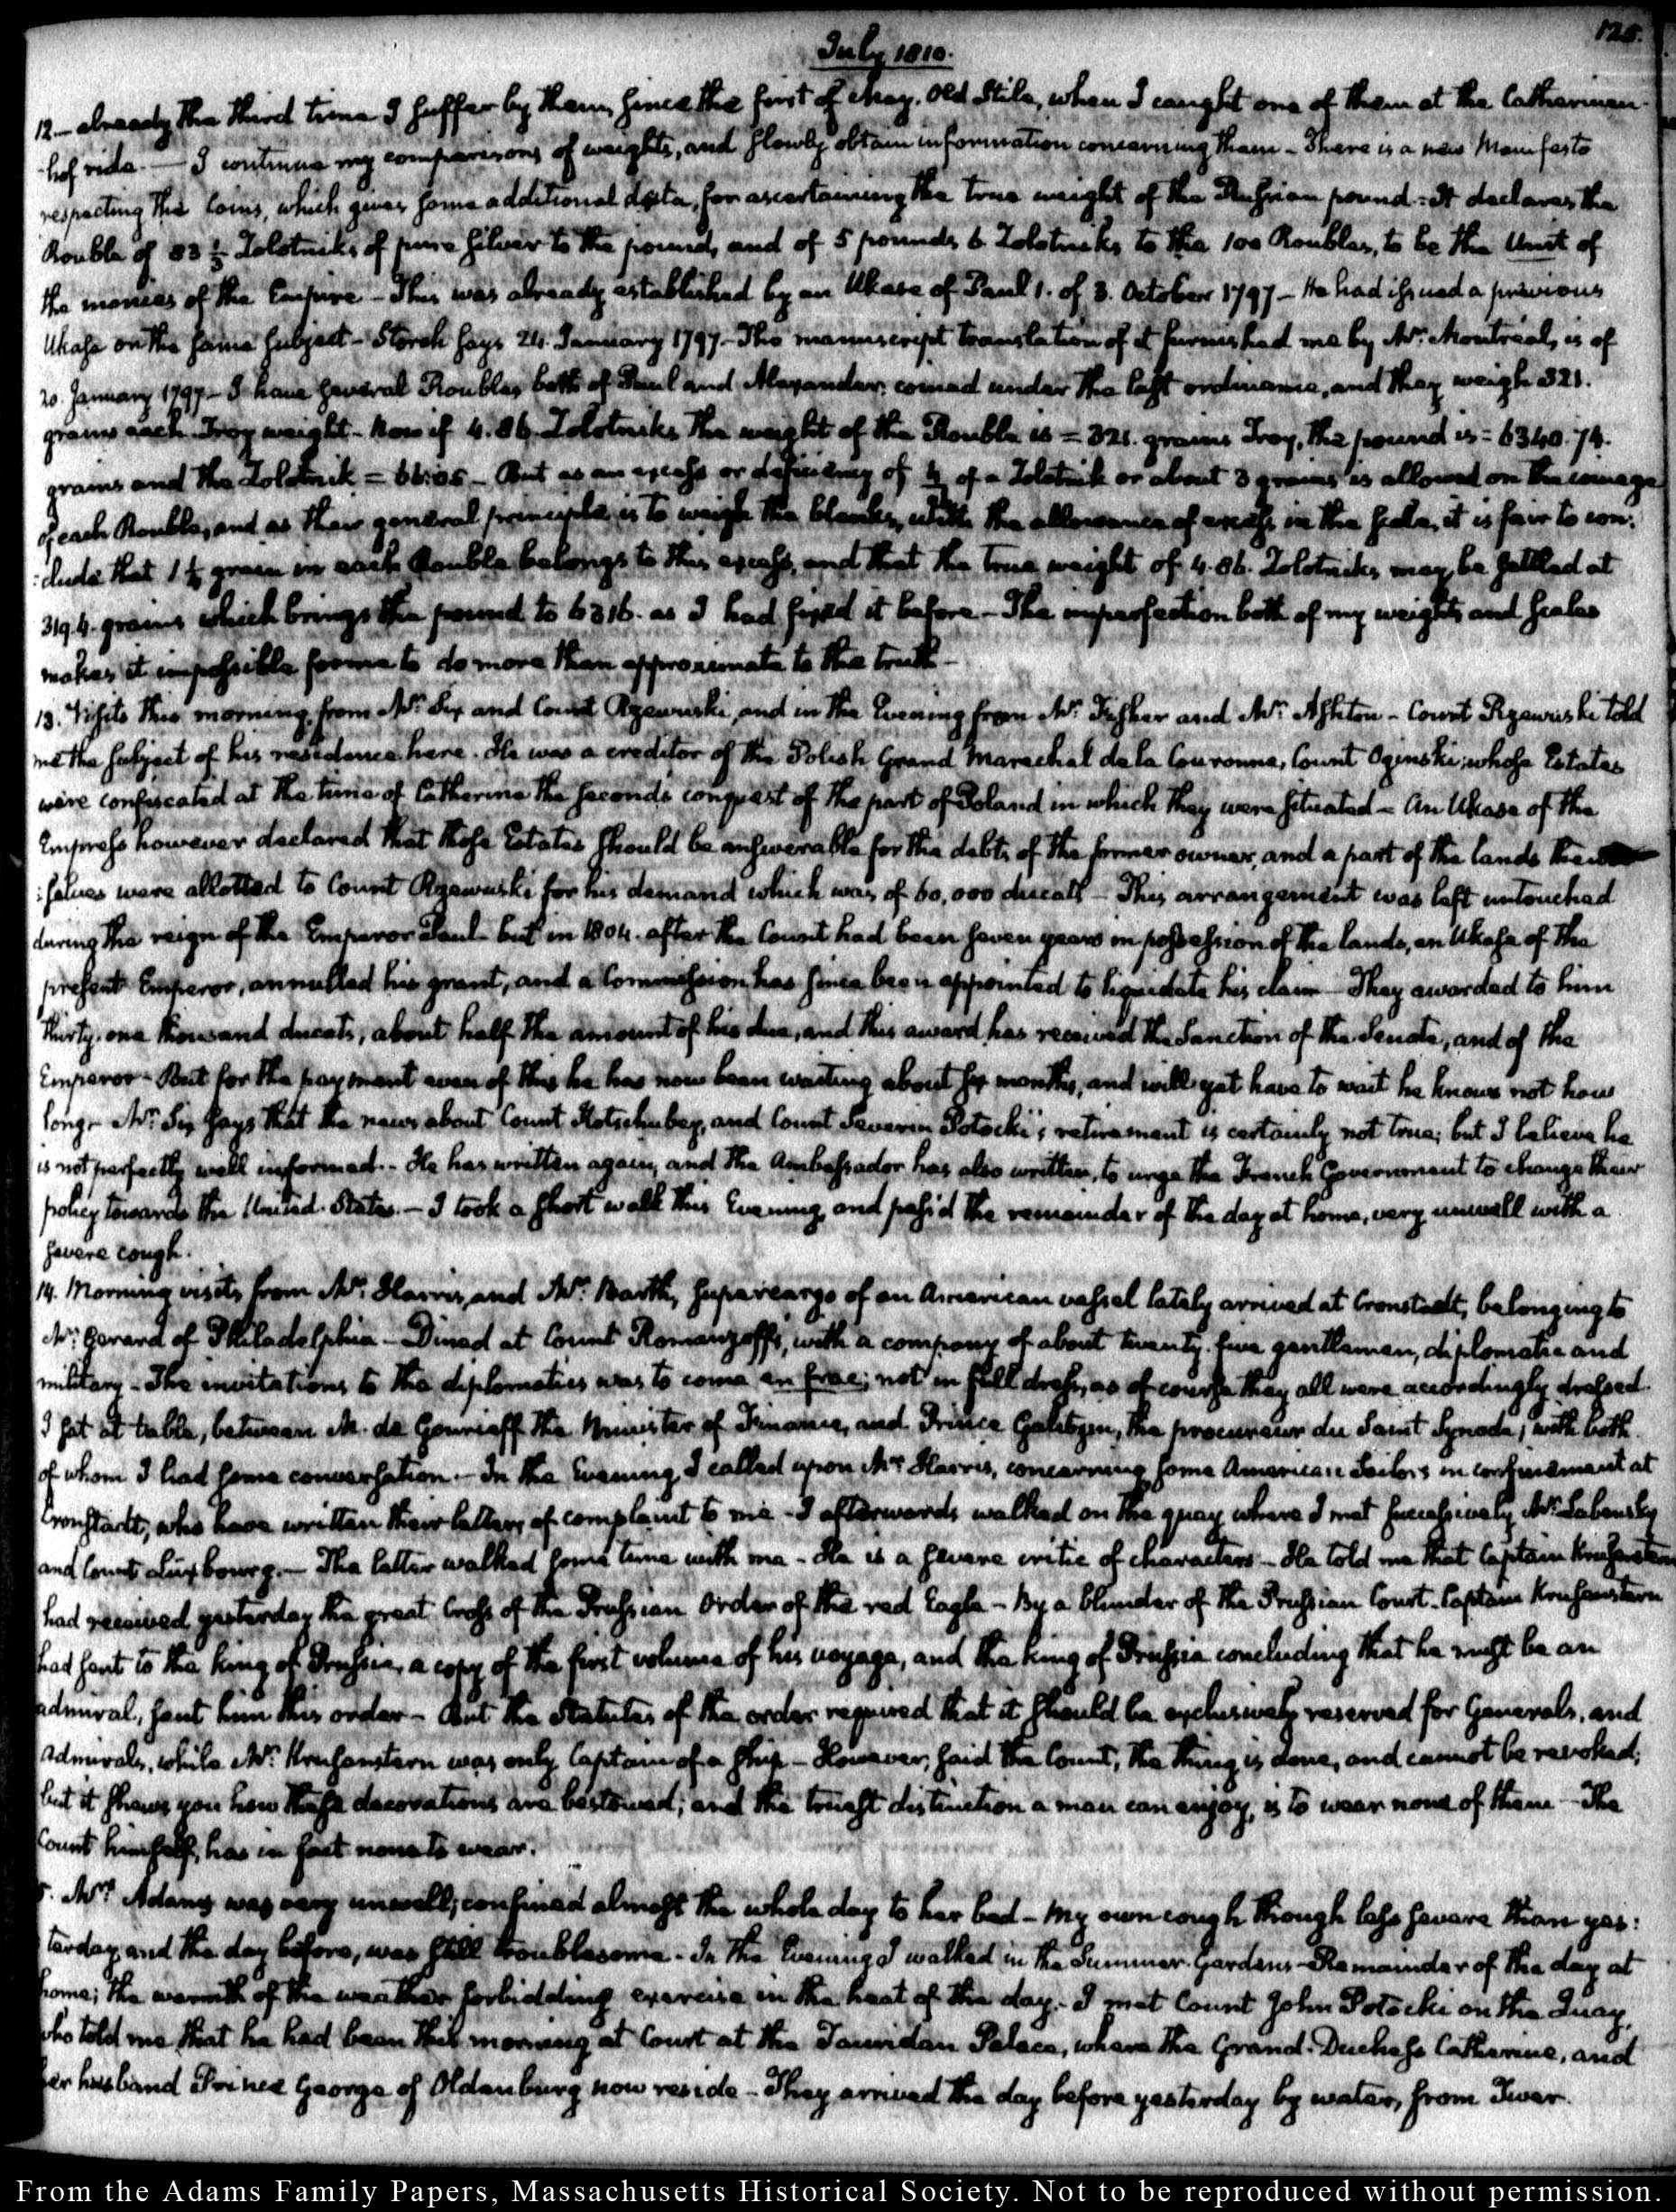 125.
July 1810.
12.— already the third time I suffer by them, since the first of May. Old Stile, when I caught one of them at the Catharinen-
-hof ride.— I continue my comparisons of weights, and slowly obtain information concerning them— There is a new Manifesto
respecting the Coins, which gives some additional data, for ascertaining the true weight of the Russian pound: It declares the
Rouble of 83 1/3 Zolotniks of pure silver to the pound, and of 5 pounds 6 Zolotniks to the 100 Roubles, to be the Unit of
the monies of the Empire— This was already established by an Ukase of Paul 1. of 3. October 1797— He had issued a previous
Ukase on the same subject— Storch says 24. January 1797— The manuscript translation of it furnished me by Mr. Montréal, is of
20. January 1797— I have several Roubles both of Paul and Alexander; coined under the last ordinance, and they weigh 321.
grains each Troy weight— Now if 4.86. Zolotniks the weight of the Rouble is = 321. grains Troy, the pound is = 6340.74.
grains and the Zolotnik = 66.05— But as an excess or deficiency of of a Zolotnik or about 3 grains is allowed on the coinage
of each Rouble, and as their general principle is to weigh the blanks, with the allowance of excess in the scale, it is fair to con:
:clude that 1 1/2 grain in each Rouble belongs to this excess, and that the true weight of 4.86. Zolotniks may be settled at
319.4. grains which brings the pound to 6316. as I had fixed it before— The imperfection both of my weights and scales
makes it impossible for me to do more than approximate to the truth—
13. Visits this morning from Mr. Six and Count Rzewuski, and in the Evening from Mr. Fisher and Mr. Ashton— Count Rzewuski told
me the subject of his residence here. He was a creditor of the Polish Grand Marechal de la Couronne, Count Oginski; whose Estates
were confiscated at the time of Catherine the second's conquest of the part of Poland in which they were situated— An Ukase of the
Empress however declared that those Estates should be answerable for the debts of the former owner, and a part of the lands them
:selves were allotted to Count Rzewuski for his demand which was of 60,000 ducats— This arrangement was left untouched
during the reign of the Emperor Paul— but in 1804. after the Count had been seven years in possession of the lands, an Ukase of the
present Emperor, annulled his grant, and a Commission has since been appointed to liquidate his claim— They awarded to him
thirty-one thousand ducats, about half the amount of his due, and this award has received the Sanction of the Senate, and of the
Emperor— But for the payment even of this he has now been waiting about six months, and will yet have to wait he knows not how
long— Mr. Six says that the news about Count Kotschubey, and Count Severin Potocki's retirement is certainly not true; but I believe he
is not perfectly well informed.— He has written again, and the Ambassador has also written, to urge the French Government to change their
policy towards the United States.— I took a short walk this Evening, and pass'd the remainder of the day at home, very unwell with a
severe cough.
14. Morning visits from Mr. Harris, and Mr. Barth, supercargo of an American vessel lately arrived at Cronstadt, belonging to
Mr. Gerard of Philadelphia— Dined at Count Romanzoff's, with a company of about twenty-five gentlemen, diplomatic and
military— The invitations to the diplomatics was to come en frac; not in full dress, as of course they all were accordingly dressed.
I sat at table, between M. de Gourieff the Minister of Finance, and Prince Galitzin, the procureur du Saint Synode; with both
of whom I had some conversation.— In the Evening I called upon Mr. Harris, concerning some American Sailors in confinement at
Cronstadt, who have written their letters of complaint to me— I afterwards walked on the quay where I met successively Mr. Labensky
and Count Luxbourg.— The latter walked some time with me— He is a severe critic of characters— He told me that Captain Krusenstern
had received yesterday the great Cross of the Prussian Order of the red Eagle— By a blunder of the Prussian Court. Captain Krusenstern
had sent to the king of Prussia, a copy of the first volume of his voyage, and the king of Prussia concluding that he must be an
admiral, sent him this order— But the Statutes of the order required that it should be exclusively reserved for Generals, and
Admirals, while Mr. Krusenstern was only Captain of a ship— However, said the Count, the thing is done, and cannot be revoked;
but it shews you how these decorations are bestowed; and the truest distinction a man can enjoy, is to wear none of them— The
Count himself, has in fact none to wear.
5. Mrs. Adams was very unwell; confined almost the whole day to her bed— My own cough though less severe than yes:
terday and the day before, was still troublesome— In the Evening I walked in the Summer Gardens— Remainder of the day at
home; the warmth of the weather forbidding exercise in the heat of the day.— I met Count John Potocki on the Quay,
who told me that he had been this morning at Court at the Tauridan Palace, where the Grand-Duchess Catherine, and
her husband Prince George of Oldenburg now reside— They arrived the day before yesterday by water, from Twer.
From the Adams Family Papers, Massachusetts Historical Society. Not to be reproduced without permission.